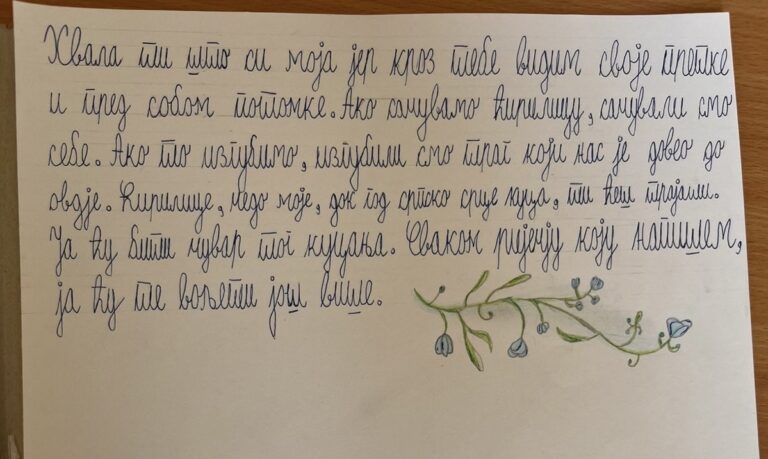 Хвала ти што си моја јер кроз тебе видим своје претке
и пред собом потомке. Ако сачувамо ћирилицу, сачували смо
себе. Ако то изгубимо, изгубили смо траг који нас је довео до
овдје. Ћирилице, чедо моје, док год српско срце куца, ти ћеш трајати.
Ја ћу бити чувар тог куцања. Сваком ријечју коју напишем,
ја ћу те вољети још више.